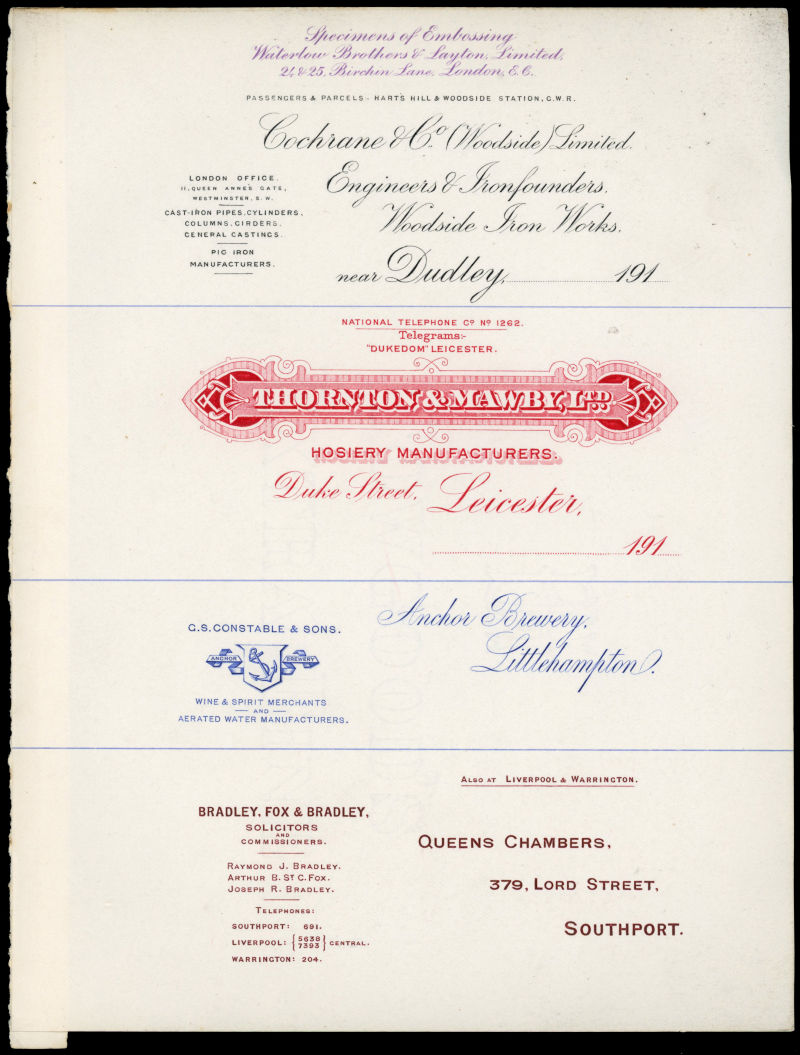 Specimens of Embossing
Waterlow Brothers & Layton, Limited,
24 & 25, Birchin Lane, London, E.C.
PASSENGERS & PARCELS - HART'S HILL & WOODSIDE STATION, G.W.R.
Cochrane & Co. (Woodside) Limited.
LONDON OFFICE.
11, QUEEN ANNE'S GATE,
WESTMINSTER, S.W.
CAST-IRON PIPES, CYLINDERS,
COLUMNS, GIRDERS,
GENERAL CASTINGS.
PIG IRON
MANUFACTURERS.
Engineers & Ironfounders.
Woodside Iron Works.
near Dudley, 191
NATIONAL TELEPHONE Co No 1262.
Telegrams:-
"DUKEDOM" LEICESTER.
THORNTON & MAWBY, LTD.
HOSIERY MANUFACTURERS.
Duke Street, Leicester,
191
G.S. CONSTABLE & SONS.
ANCHOR BREWERY
WINE & SPIRIT MERCHANTS
AND
AERATED WATER MANUFACTURERS.
Anchor Brewery,
Littlehampton.
ALSO AT LIVERPOOL & WARRINGTON.
BRADLEY, FOX & BRADLEY,
SOLICITORS
AND
COMMISSIONERS.
RAYMOND J. BRADLEY.
ARTHUR B. ST C. FOX.
JOSEPH R. BRADLEY.
TELEPHONES:
SOUTHPORT: 691.
LIVERPOOL: {5638 7393} CENTRAL.
WARRINGTON: 204.
QUEENS CHAMBERS,
379, LORD STREET,
SOUTHPORT.